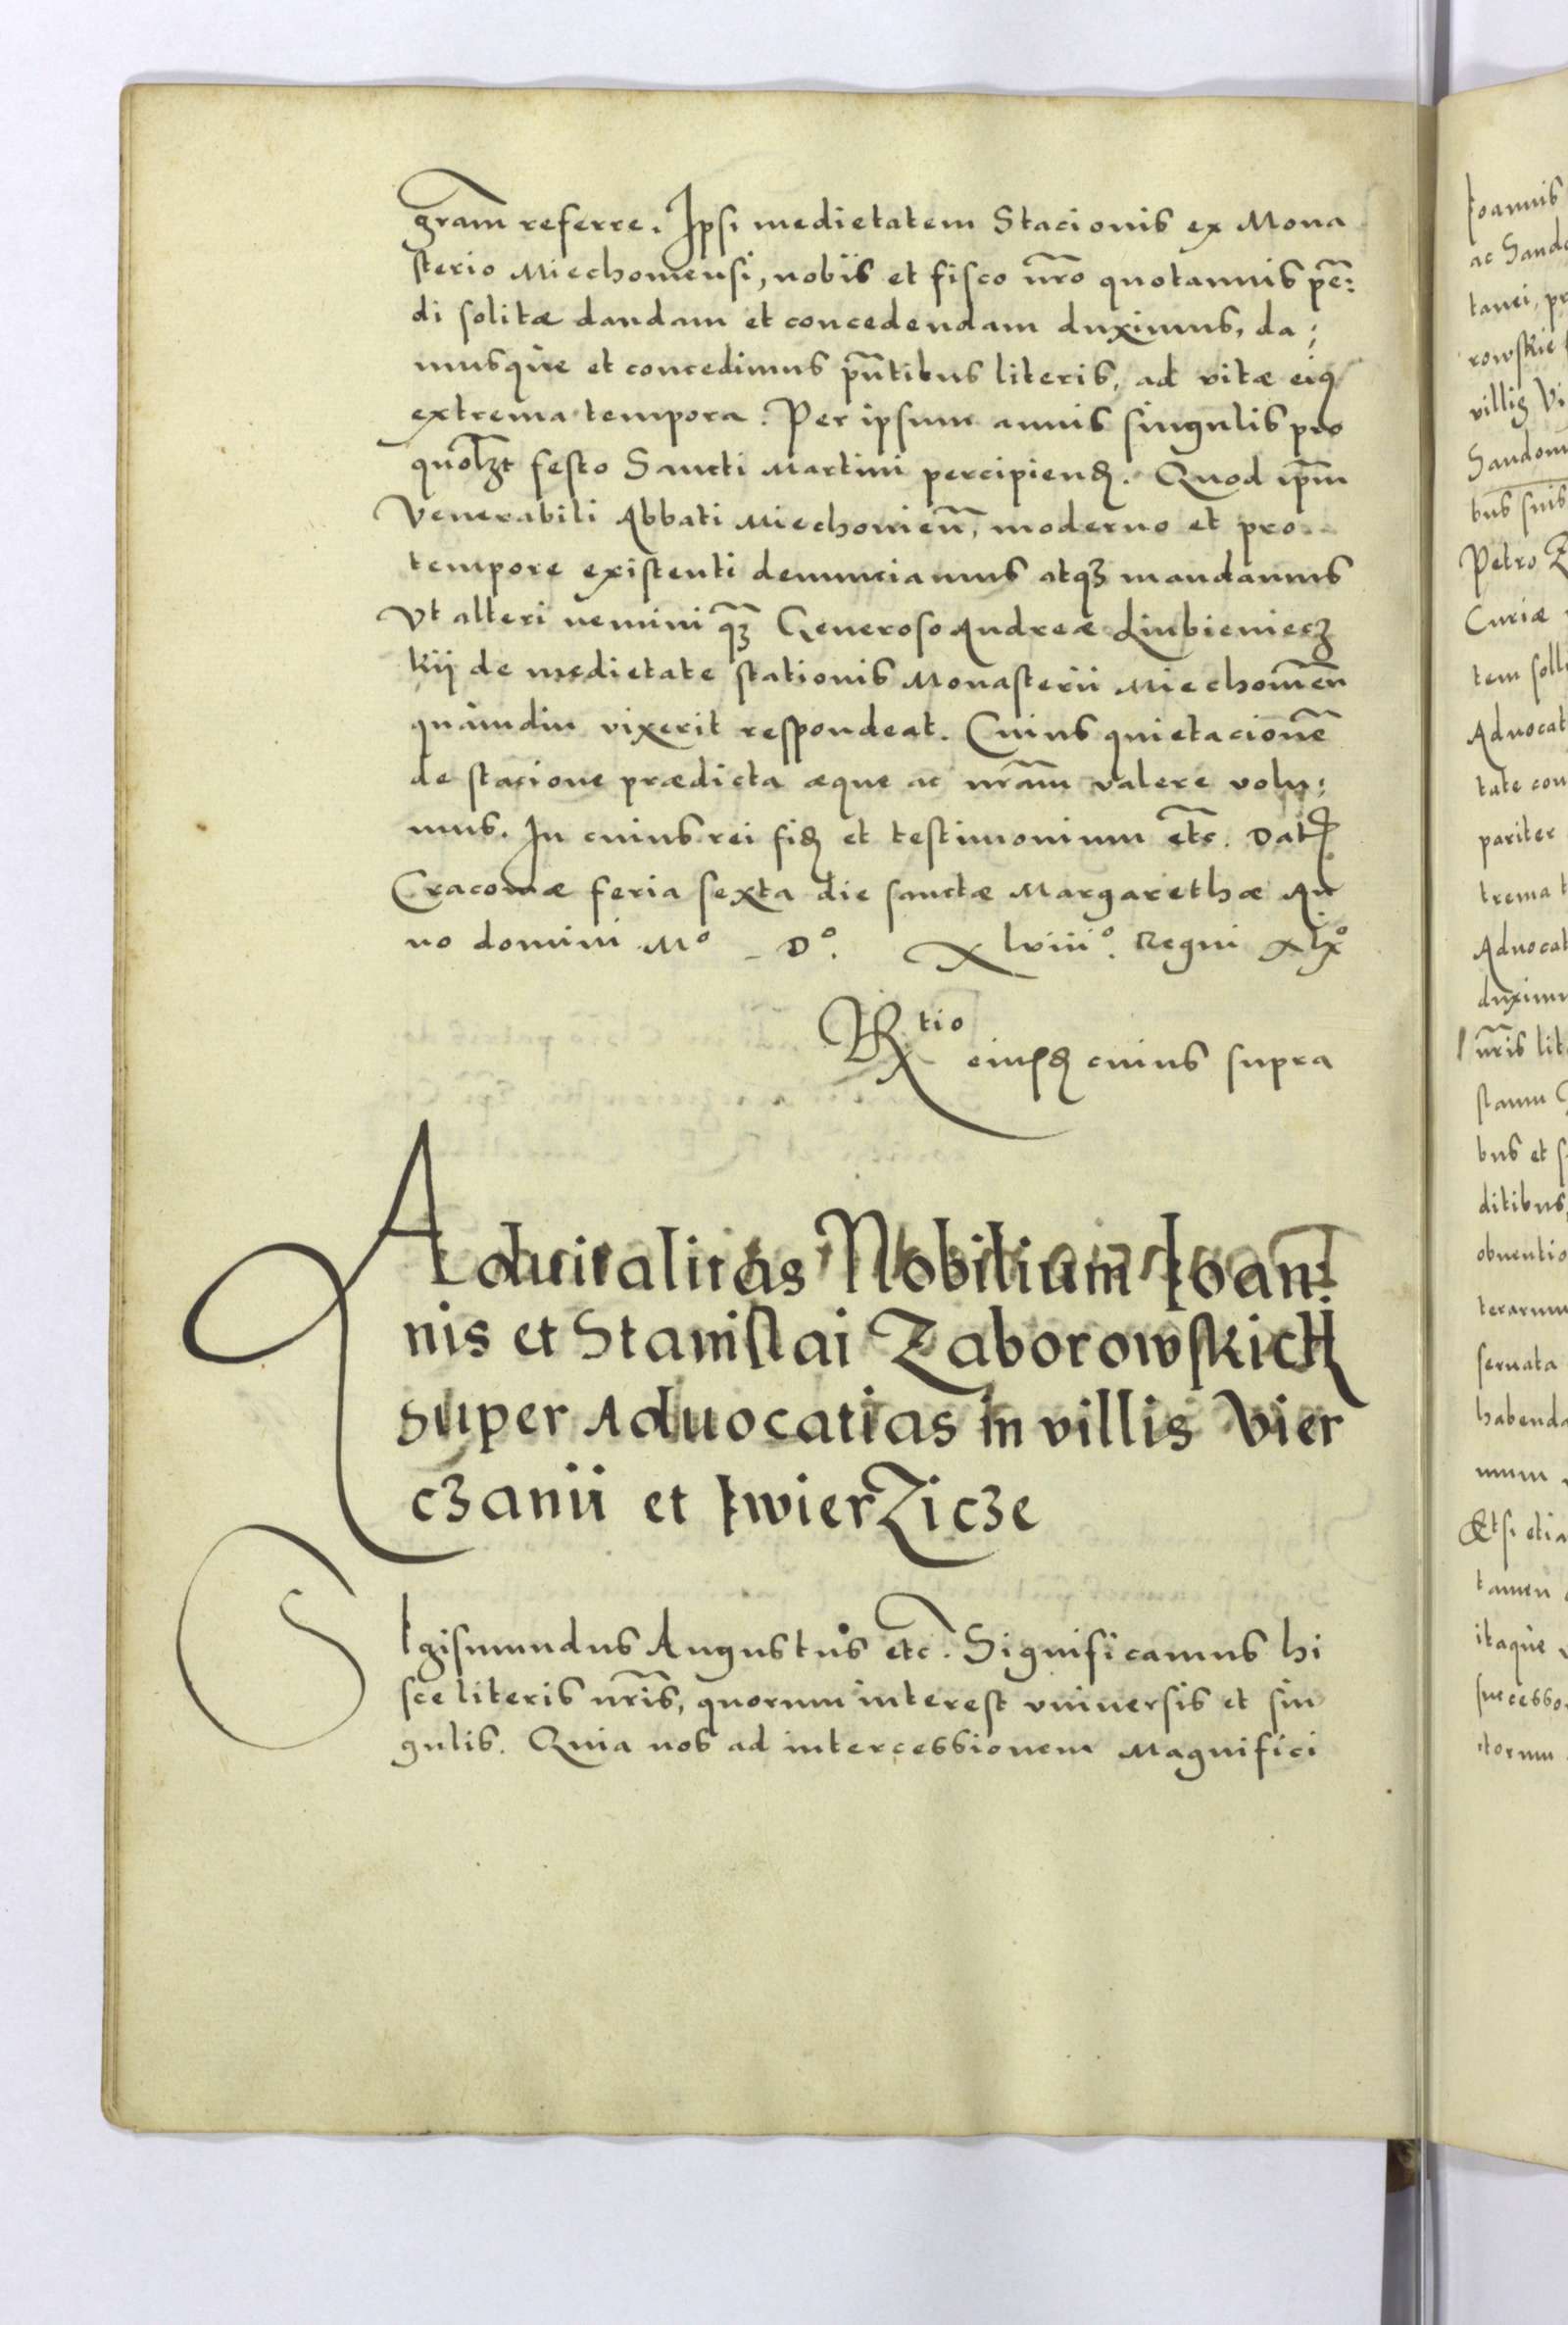 gr̃am referre. Ipsi medietatem Stacionis ex Mona
sterio Miechouiensi, nobis et fisco nr̃o quotannis pẽ:
di solitæ dandam et concedendam duximus, da:
musque et concedimus pñtibus literis, ad vitæ eiꝰ
extrema tempora. Per ipsum annis singulis pro
quolꝫt festo Sancti Martini percipienꝺ. Quod ip̃m
Venerabili Abbati Miechouień, moderno et pro
tempore existenti denunciamus atqꝫ mandamus
Vt alteri nemini q̃ꝫ Generoso Andreæ Liubieniecz
kij de medietate stationis Monasterii Miechouień
quamdiu vixerit respondeat. Cuius quietacionẽ
de stacione prædicta æque ac nr̃am valere volu:
mus. In cuius rei fiꝺ et testimonium etc̃. Dat
Cracouiæ feria sexta die sanctæ Margarethæ An
no domini M° D°. Xlviii°. Regni xix°
Rtio eiusꝺ cuius supra
Aduitalitas Nobilium Ioan:
nis et Stanislai Zaborowskich
super Aduocatias in villis Vier
czanii et Iwierzicze
SIgismundus Augustus etc̃. Significamus hi
sce literis nr̃is, quorum interest vniuersis et sin
gulis. Quia nos ad intercessionem Magnifici
Ioannis
ac Sando
tanei, pr
rowskie
villis Vi
Sandom
bus suis
Petro Z
Curiæ
tem soll
Aduocat
tate con
pariter
trema t
Aduocat
duximu
nr̃is lit
stannu
bus et s
ditibus
obuentio
terarum
seruata
habenda
mum
Etsi etia
tamen
itaque
successo
torum